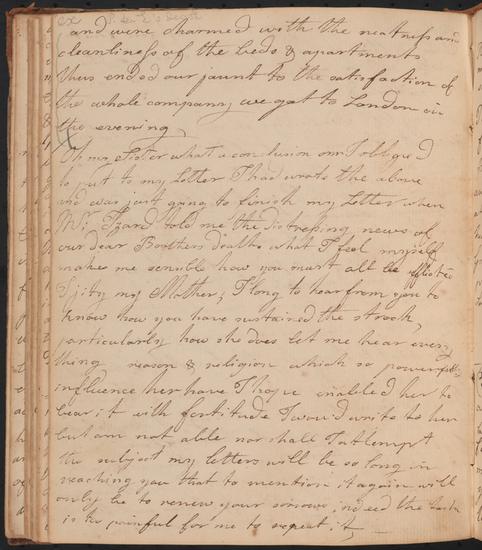 and were charmed with the neattness and
cleanliness of the beds & apartments
thus ended our jaunt to the satisfaction of
the whole company we got to London in
the evening,
Oh my Sister what a conclusion am I obliged
to put to my Letter I had wrote the above
and was just going to finish my Letter when
Mr. Izard told me the distressing news of
our dear Brothers death what I feel myself
makes me sensible how you must all be afflicted
I pity my Mother; I long to hear from you to
know how you have sustained the stroke,
particularly how she does let me hear every
thing reason & religion which so powerfully
influence her have I hope enabled her to
bear it with fortitude I woud write to her
but am not able nor shall I attempt
the subject my letters will be so long in
reaching you that to mention it again will
only be to renew your sorrow, indeed the task
is too painful for me to repeat it,